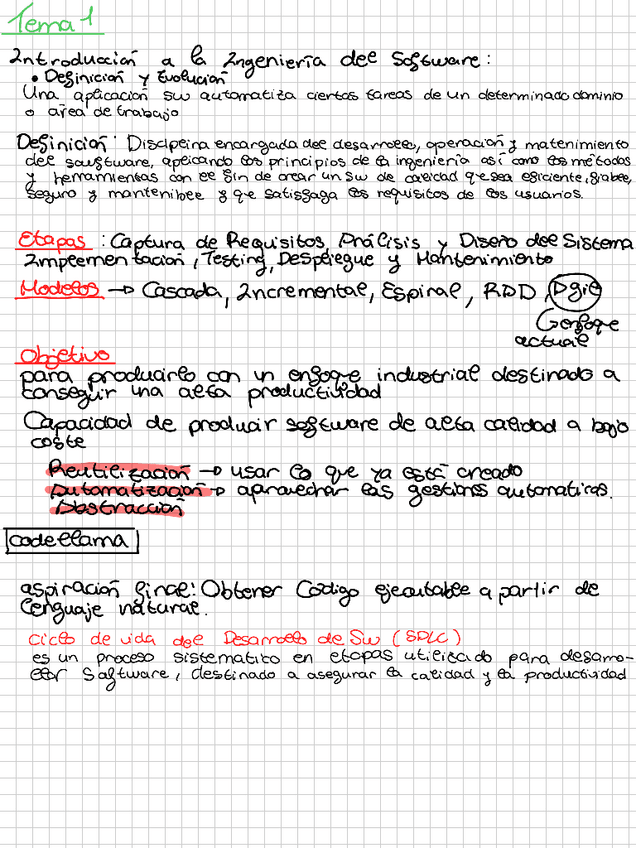 Tema 1
Introducción a la Ingeniería del Software:
• Definición y Evolución
Una aplicación sw automatiza ciertas tareas de un determinado dominio
o área de trabajo
Definición: Disciplina encargada del desarrollo, operación y matenimiento
del software, aplicando los principios de la ingeniería así como los métodos
y herramientas con el fin de crear un sw de calidad que sea eficiente, fiable,
seguro y mantenible y que satisfaga los requisitos de los usuarios.
Etapas: Captura de Requisitos, Análisis y Diseño del Sistema
Implementación, Testing, Despliegue y Mantenimiento
Modelos → Cascada, Incremental, Espiral, RAD, Agile
enfoque
actual
Objetivo
para producirlo con un enfoque industrial destinado a
conseguir una alta productividad
Capacidad de producir software de alta calidad a bajo
coste
Reutilización → usar lo que ya está creado
Automatización → aprovechar las gestiones automaticas.
Abstracción
codellama
aspiración final: Obtener Código ejecutable a partir de
lenguaje natural.
ciclo de vida del Desarrollo de Sw (SDLC)
es un proceso sistematico en etapas utilizado para desarro-
llar Software, destinado a asegurar la calidad y la productividad